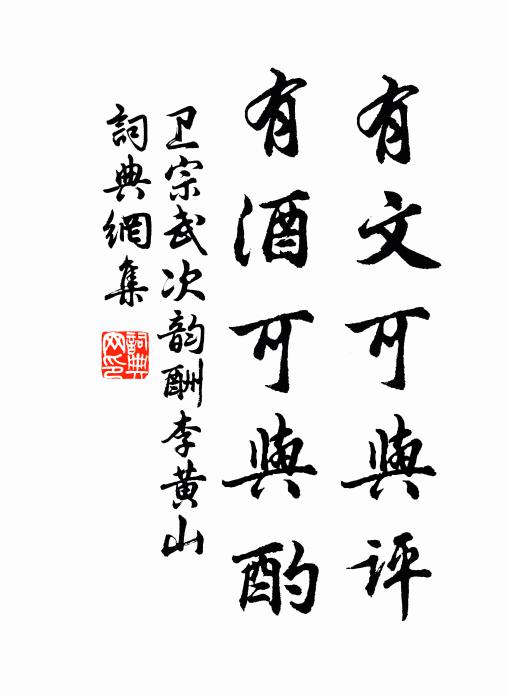 有文可與评
有酒可與酌
卫宗武次韵酬李黄山
詞典網集
詞典网印